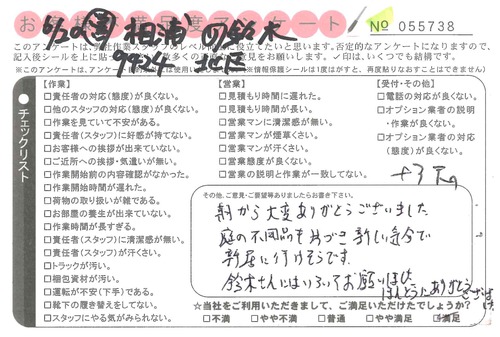 お客様満足度アンケート
№ 055738
6/20 相浦 の 鈴木
9424
このアンケートは、弊社作業スタッフのレベル向上に役立てたいと思います。否定的なアンケートになりますので、
✓印は、いくつでも結構です。
チェックリスト
【作業】
□責任者の対応(態度)が良くない。
□他のスタッフの対応(態度)が良くない。
□作業を見ていて不安がある。
□責任者(スタッフ)に好感が持てない。
□お客様への挨拶が出来ていない。
□ご近所への挨拶・気遣いが無い。
□作業開始前の内容確認がなかった。
□作業開始時間が遅れた。
□荷物の取り扱いが雑である。
□お部屋の養生が出来ていない。
□作業時間が長すぎる。
□責任者(スタッフ)に清潔感が無い。
□責任者(スタッフ)が汗くさい。
□トラックが汚い。
□梱包資材が汚い。
□運転が不安(下手)である。
□靴下の履き替えをしてない。
□スタッフにやる気がみられない。
【営業】
□見積もり時間に遅れた。
□見積もり時間が長い。
□営業マンに清潔感が無い。
□営業マンが煙草くさい。
□営業マンが汗くさい。
□営業態度が良くない。
□営業の説明と作業が一致してない。
【受付・その他】
□電話の対応が良くない。
□オプション業者の説明
・作業が良くない。
□オプション業者の対応
(態度)が良くない。
その他、ご意見・ご要望等ありましたらお書き下さい。
朝から大変ありがとうございました
庭の不用品も片づき新しい気分で
新居に行けそうです。
鈴木さんには
ほんとうにありがとう
ございます
☆当社をご利用いただきまして、ご満足いただけたでしょうか?
□不満 □やや不満 □普通 □やや満足 □満足